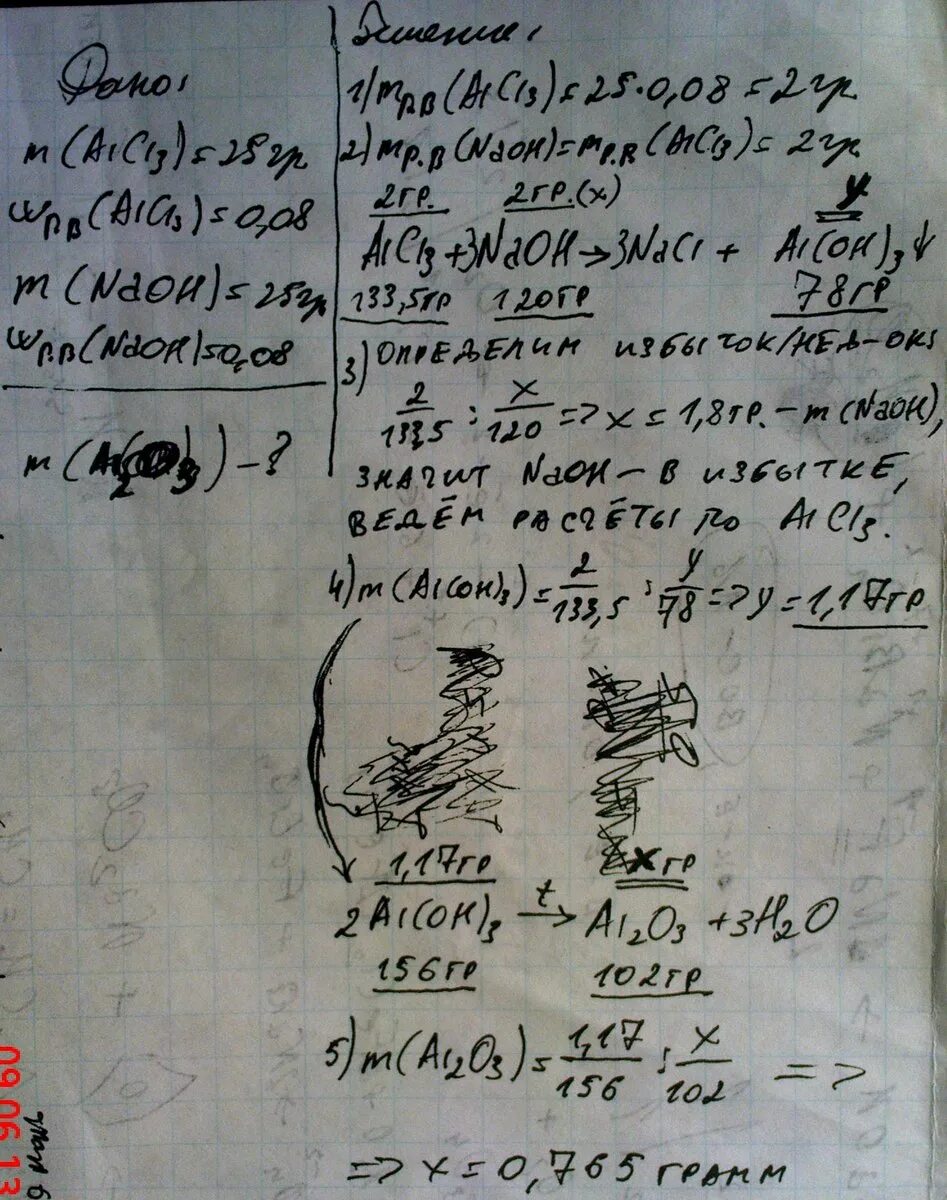 Дано:
m(AlCl3)=25гр
ωр.в(AlCl3)=0,08
m(NaOH)=25гр
ωр.в(NaOH)=0,08
m(Al2O3)-?
Решение:
1) mр.в(AlCl3)=25·0,08=2гр
2) mр.в(NaOH)=mр.в(AlCl3)=2гр
2гр. 2гр.(x) y
AlCl3+3NaOH→3NaCl+Al(OH)3↓
133,5гр 120гр 78гр
3) ОПРЕДЕЛИМ ИЗБЫТОК/НЕД-ОК:
2/133,5 : x/120 => x = 1,8гр. - m(NaOH),
ЗНАЧИТ NaOH – В ИЗБЫТКЕ,
ВЕДЁМ РАСЧЁТЫ ПО AlCl3.
4) m(Al(OH)3)= 2/133,5 : y/78 => y = 1,17гр
1,17гр xгр
2Al(OH)3 t→ Al2O3 +3H2O
156гр 102гр
5) m(Al2O3)= 1,17/156 : x/102 =>
=> x = 0,765 грамм
09.06.13